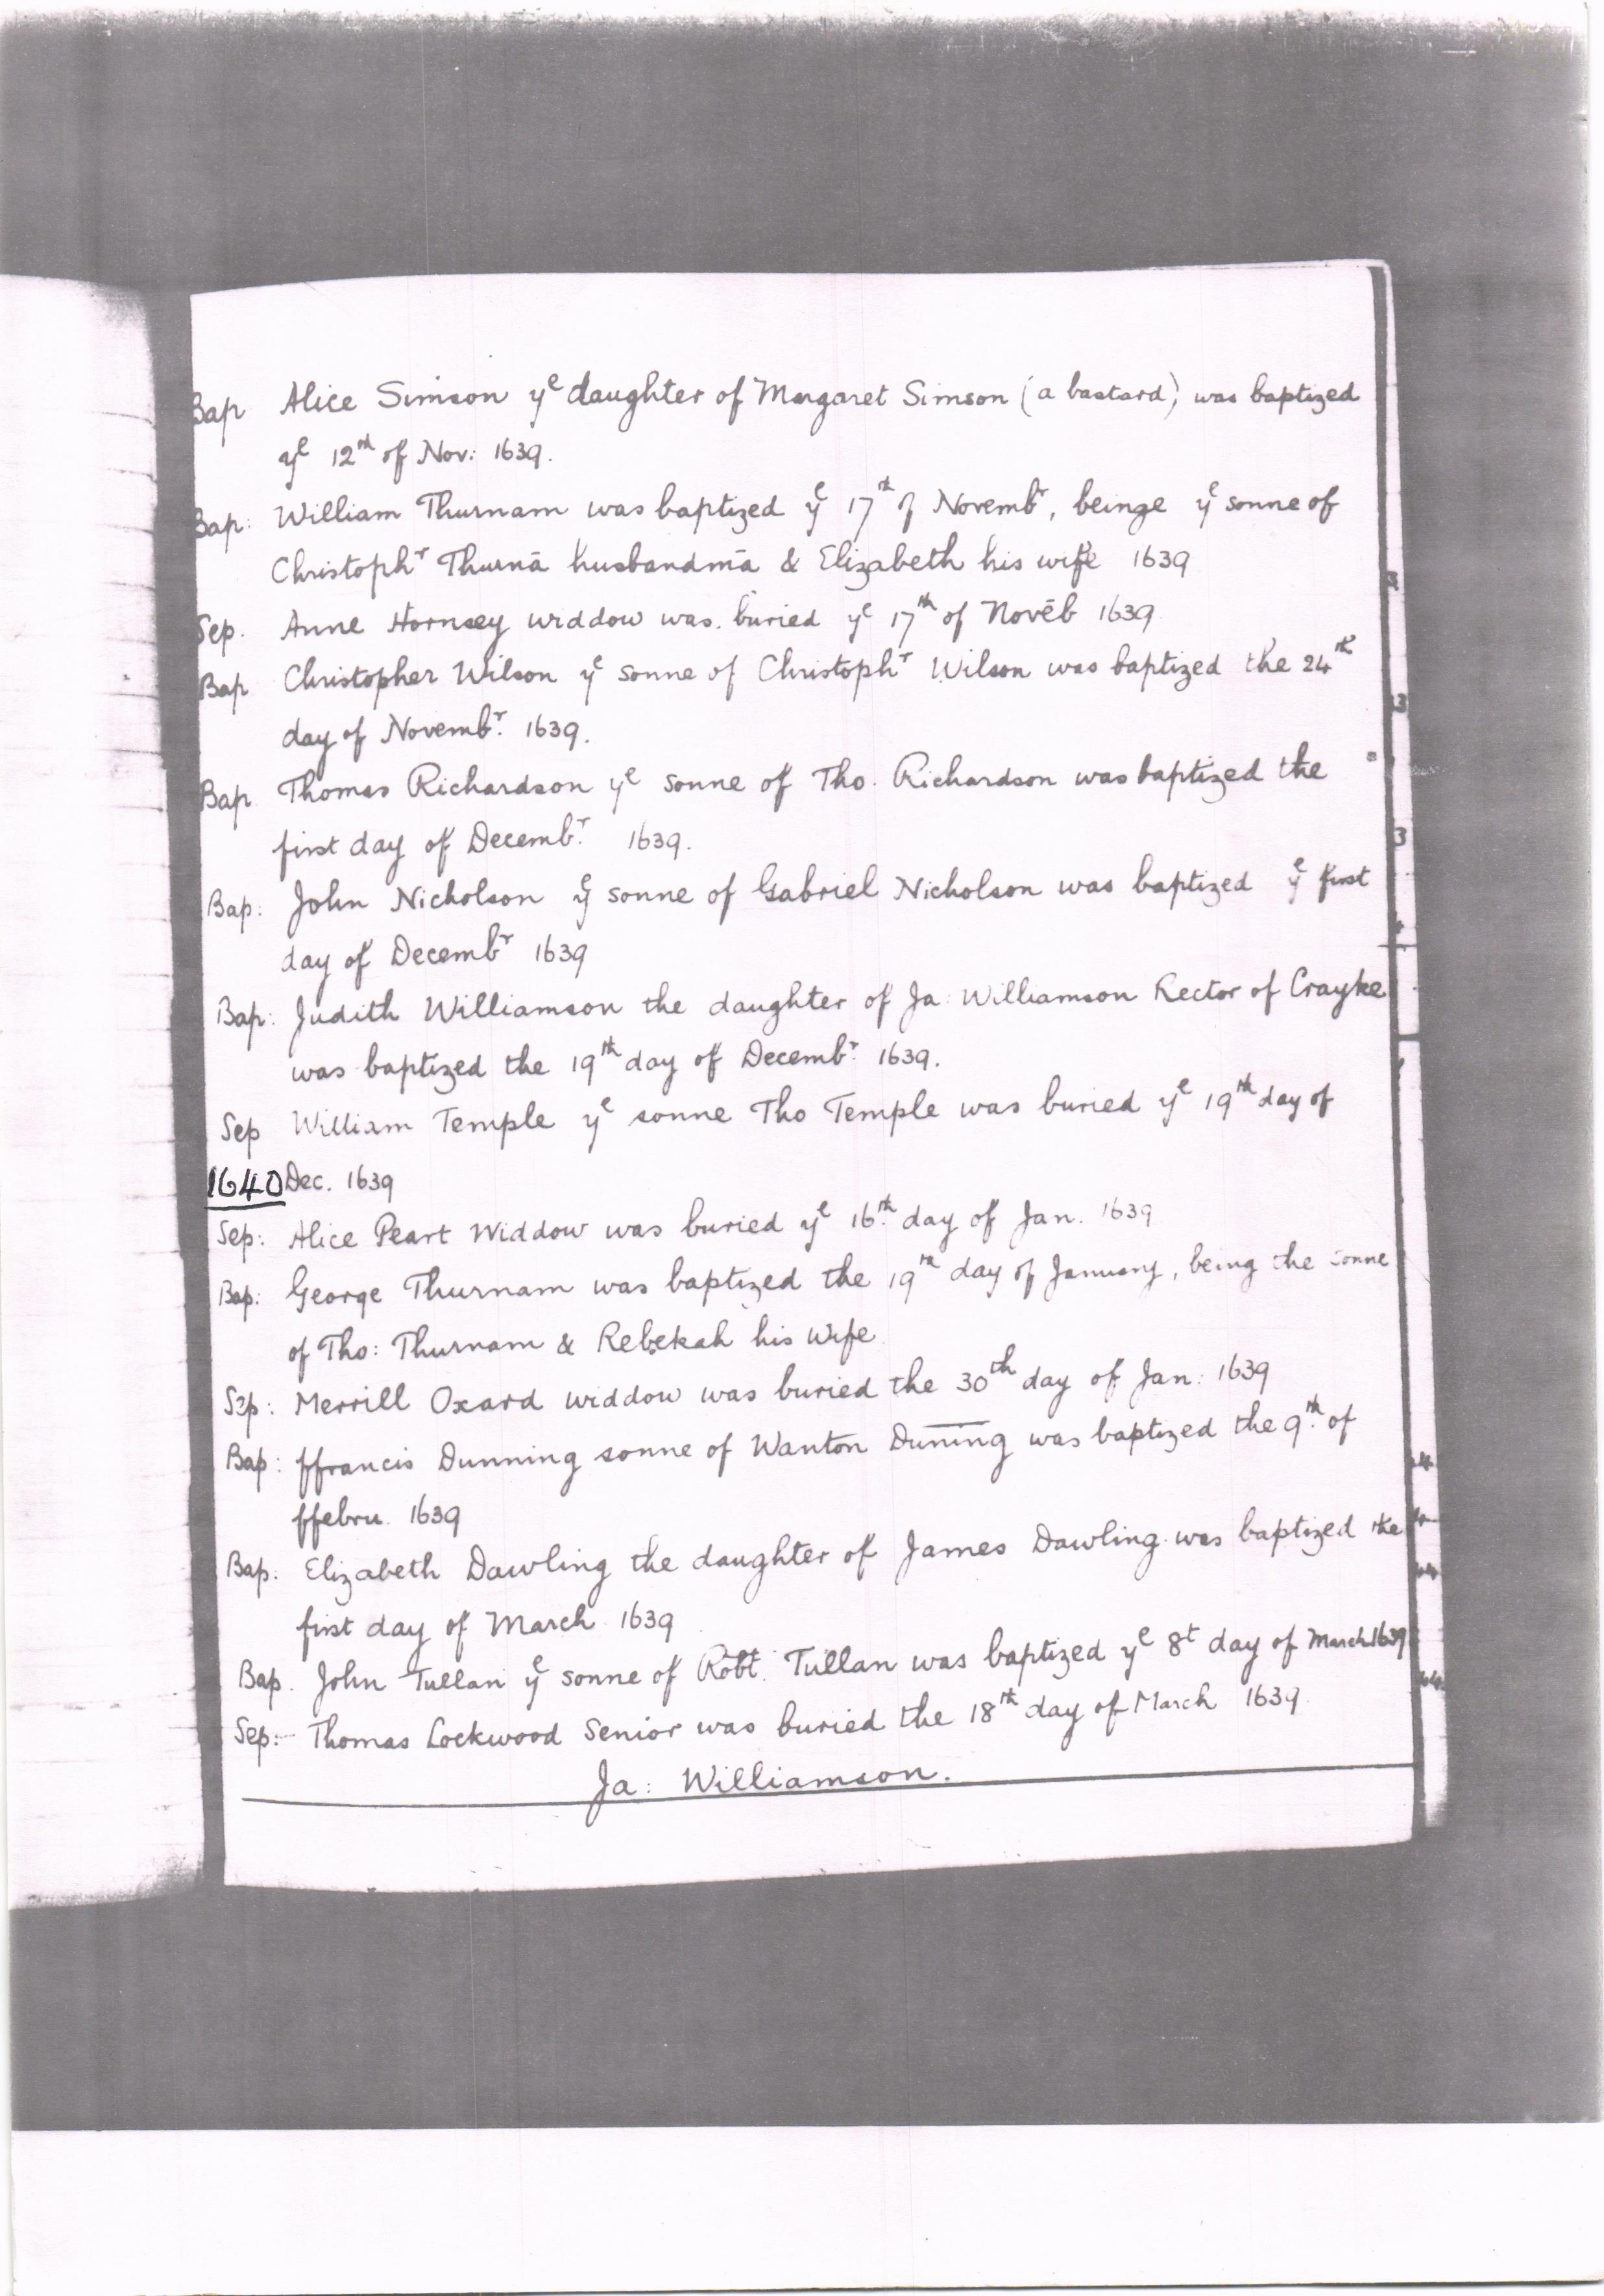 Bap Alice Simson yᵉ daughter of Margaret Simson (a bastard) was baptized
yᵉ 12ᵗʰ of Nov: 1639.
Bap: William Thurnam was baptized yᵉ 17ᵗʰ of Novembʳ, beinge yᵉ sonne of
Christophʳ Thurnā husbandmā & Elizabeth his wife 1639
Sep. Anne Hornsey widdow was buried yᵉ 17ᵗʰ of Novēb 1639
Bap Christopher Wilson yᵉ sonne of Christophʳ Wilson was baptized the 24ᵗʰ
day of Novembʳ. 1639.
Bap Thomas Richardson yᵉ sonne of Tho. Richardson was baptized the
first day of Decembʳ. 1639.
Bap: John Nicholson yᵉ sonne of Gabriel Nicholson was baptized yᵉ first
day of Decembʳ 1639
Bap: Judith Williamson the daughter of Ja: Williamson Rector of Crayke
was baptized the 19ᵗʰ day of Decembʳ. 1639.
Sep William Temple yᵉ sonne Tho Temple was buried yᵉ 19ᵗʰ day of
1640 Dec. 1639
Sep: Alice Peart Widdow was buried yᵉ 16ᵗʰ. day of Jan. 1639
Bap: George Thurnam was baptized the 19ᵗʰ day of January, being the sonne
of Tho: Thurnam & Rebekah his wife
Sep: Merrill Oxard widdow was buried the 30ᵗʰ day of Jan: 1639
Bap: ffrancis Dunning sonne of Wanton Dun̄ing was baptized the 9ᵗʰ. of
ffebru. 1639
Bap: Elizabeth Dawling the daughter of James Dawling was baptized the
first day of March 1639
Bap. John Tullan yᵉ sonne of Robt. Tullan was baptized yᵉ 8ᵗ day of March 1639
Sep:- Thomas Lockwood Senior was buried the 18ᵗʰ day of March 1639
Ja: Williamson.